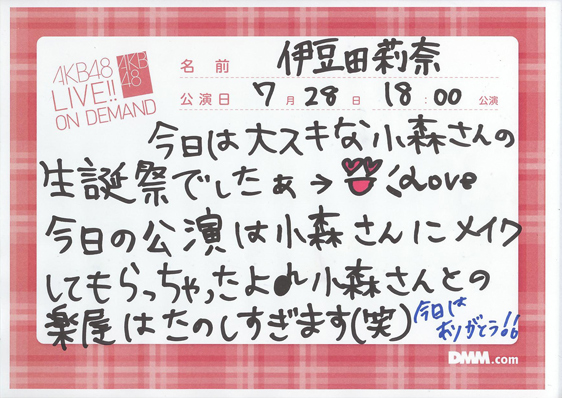 AKB48
LIVE!!
ON DEMAND
AKB
48
名前 伊豆田莉奈
公演日 7月28日 18:00 公演
今日は大スキな小森さんの
生誕祭でしたぁ→ Love
今日の公演は小森さんにメイク
してもらっちゃったよ♪小森さんとの
楽屋はたのしすぎます(笑)
今日は
ありがとう!!
DMM.com